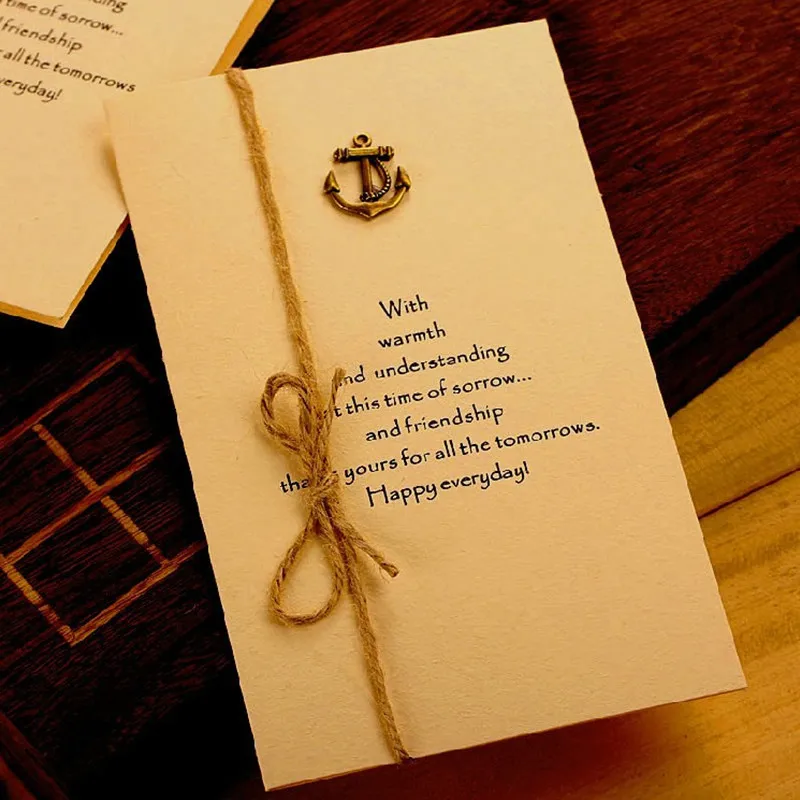 time of sorrow...
friendship
all the tomorrows
everyday!
With
warmth
and understanding
at this time of sorrow...
and friendship
that is yours for all the tomorrows.
Happy everyday!